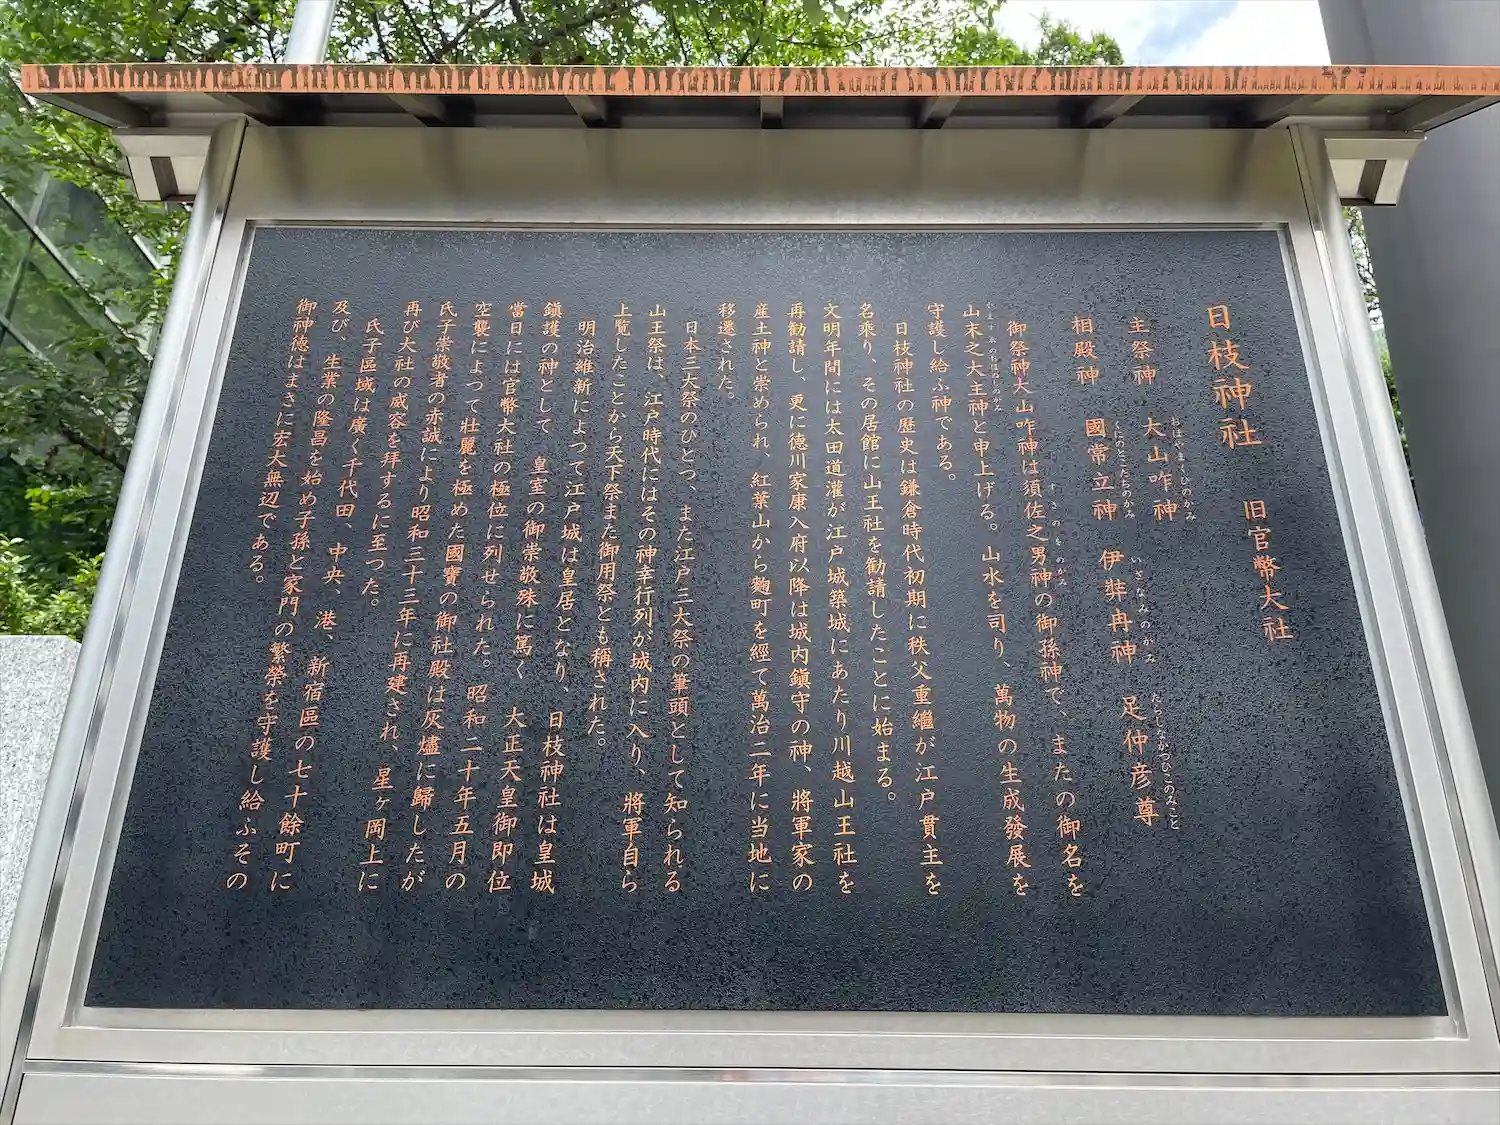 日枝神社　旧官幣大社
主祭神　大山咋神　おほやまくひのかみ
相殿神　國常立神　くにのとこたちのかみ　伊弉冉神　いざなみのかみ　足仲彦尊　たらしなかつひこのみこと
御祭神大山咋神は須佐之男神の御孫神で、またの御名を　すさのをのかみ
山末之大主神と申上げる。山水を司り、萬物の生成發展を　やますゑのおほぬしのかみ
守護し給ふ神である。
日枝神社の歴史は鎌倉時代初期に秩父重繼が江戸貫主を
名乗り、その居館に山王社を勧請したことに始まる。
文明年間には太田道灌が江戸城築城にあたり川越山王社を
再勧請し、更に徳川家康入府以降は城内鎮守の神、將軍家の
産土神と崇められ、紅葉山から麴町を經て萬治二年に当地に
移遷された。
日本三大祭のひとつ、また江戸三大祭の筆頭として知られる
山王祭は、江戸時代にはその神幸行列が城内に入り、將軍自ら
上覽したことから天下祭また御用祭とも稱された。
明治維新によって江戸城は皇居となり、日枝神社は皇城
鎭護の神として、皇室の御崇敬殊に篤く　大正天皇御即位
當日には官幣大社の極位に列せられた。昭和二十年五月の
空襲によって壮麗を極めた國寶の御社殿は灰燼に歸したが
氏子崇敬者の赤誠により昭和三十三年に再建され、星ヶ岡上に
再び大社の威容を拜するに至った。
氏子區域は廣く千代田、中央、港、新宿區の七十餘町に
及び、生業の隆昌を始め子孫と家門の繁榮を守護し給ふその
御神徳はまさに宏大無辺である。